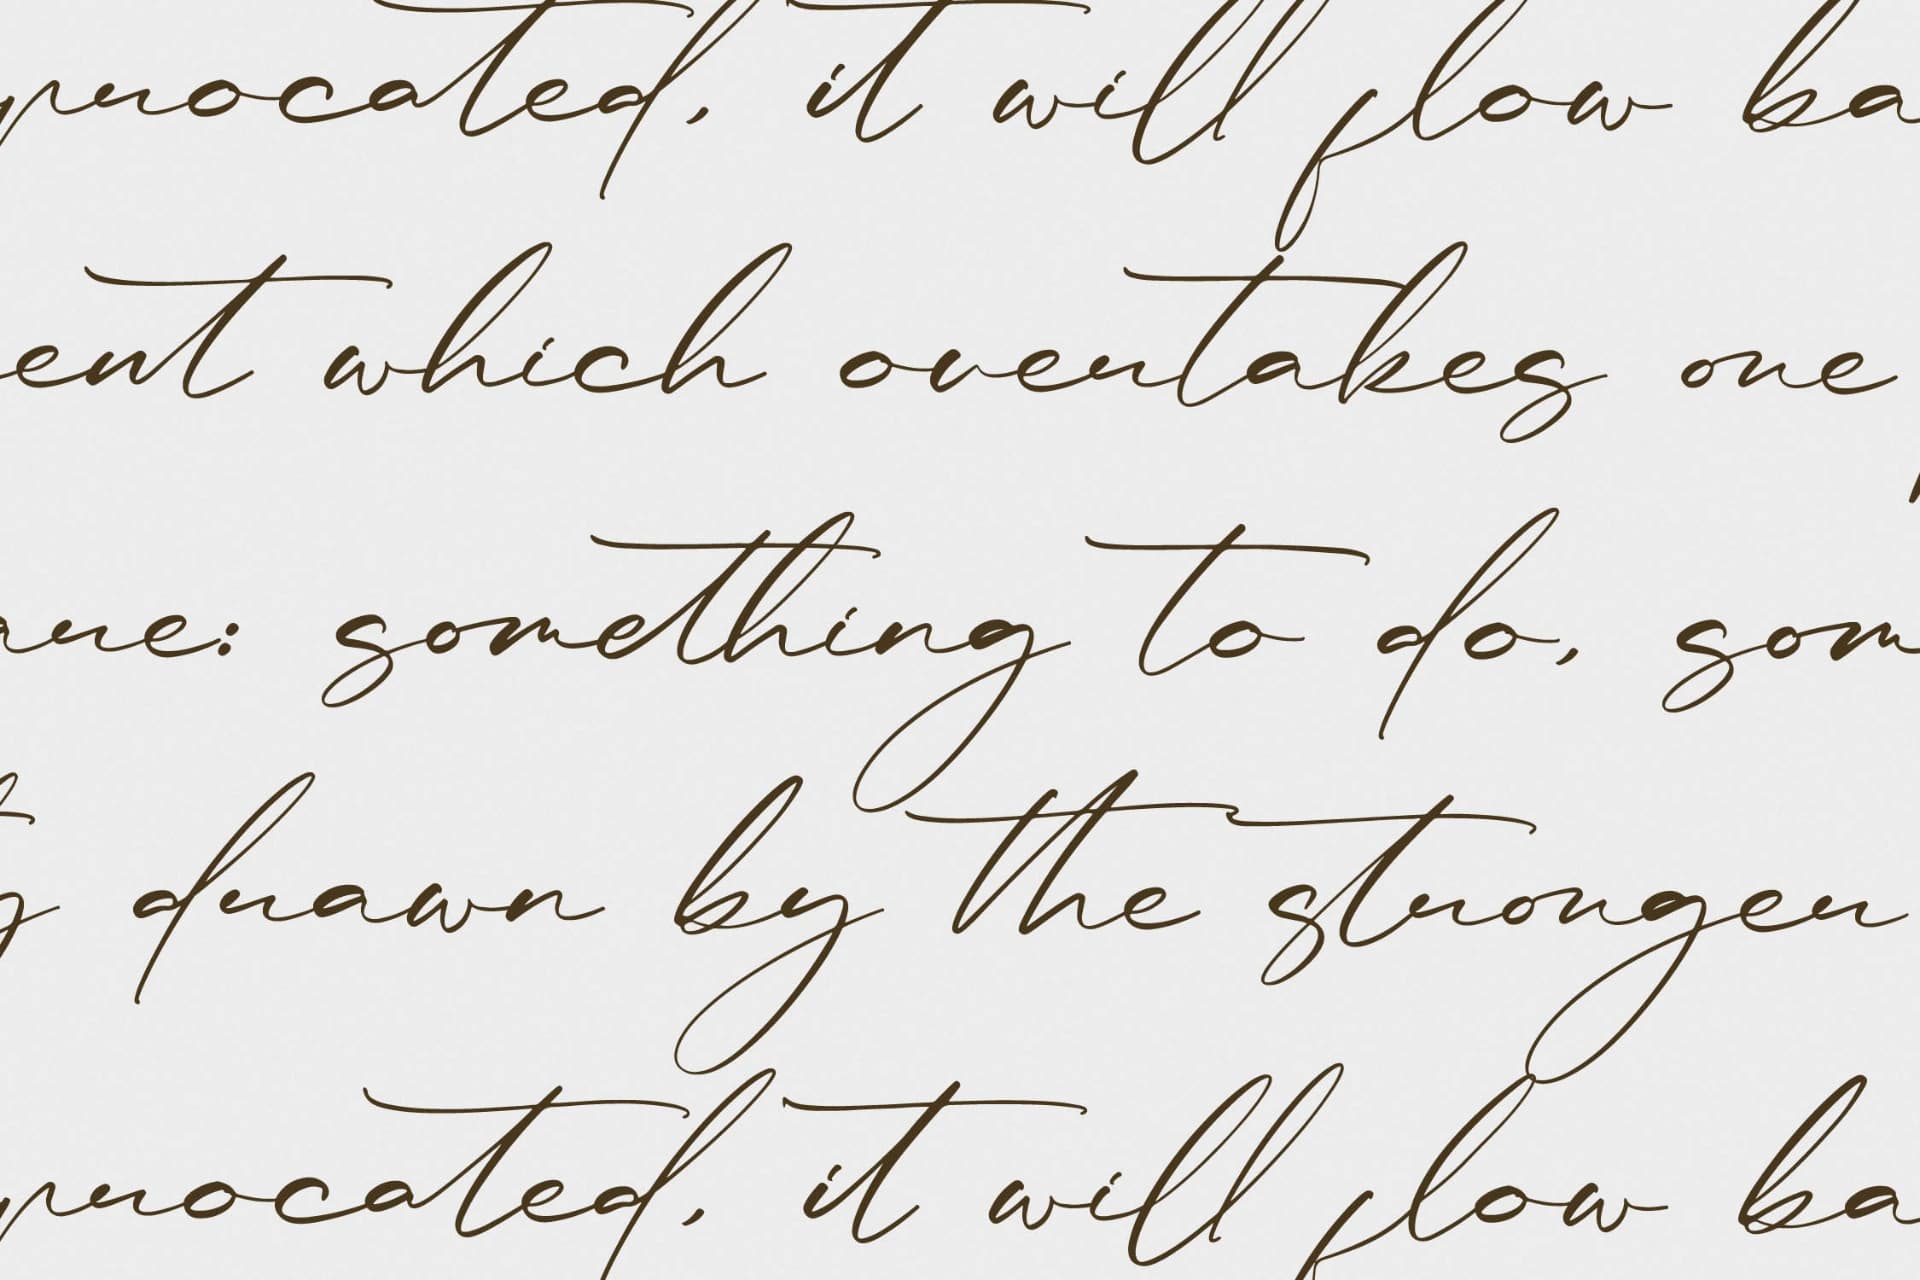 procated, it will flow ba
ent which overtakes one
are: something to do, som
g drawn by the stronger
procated, it will flow ba